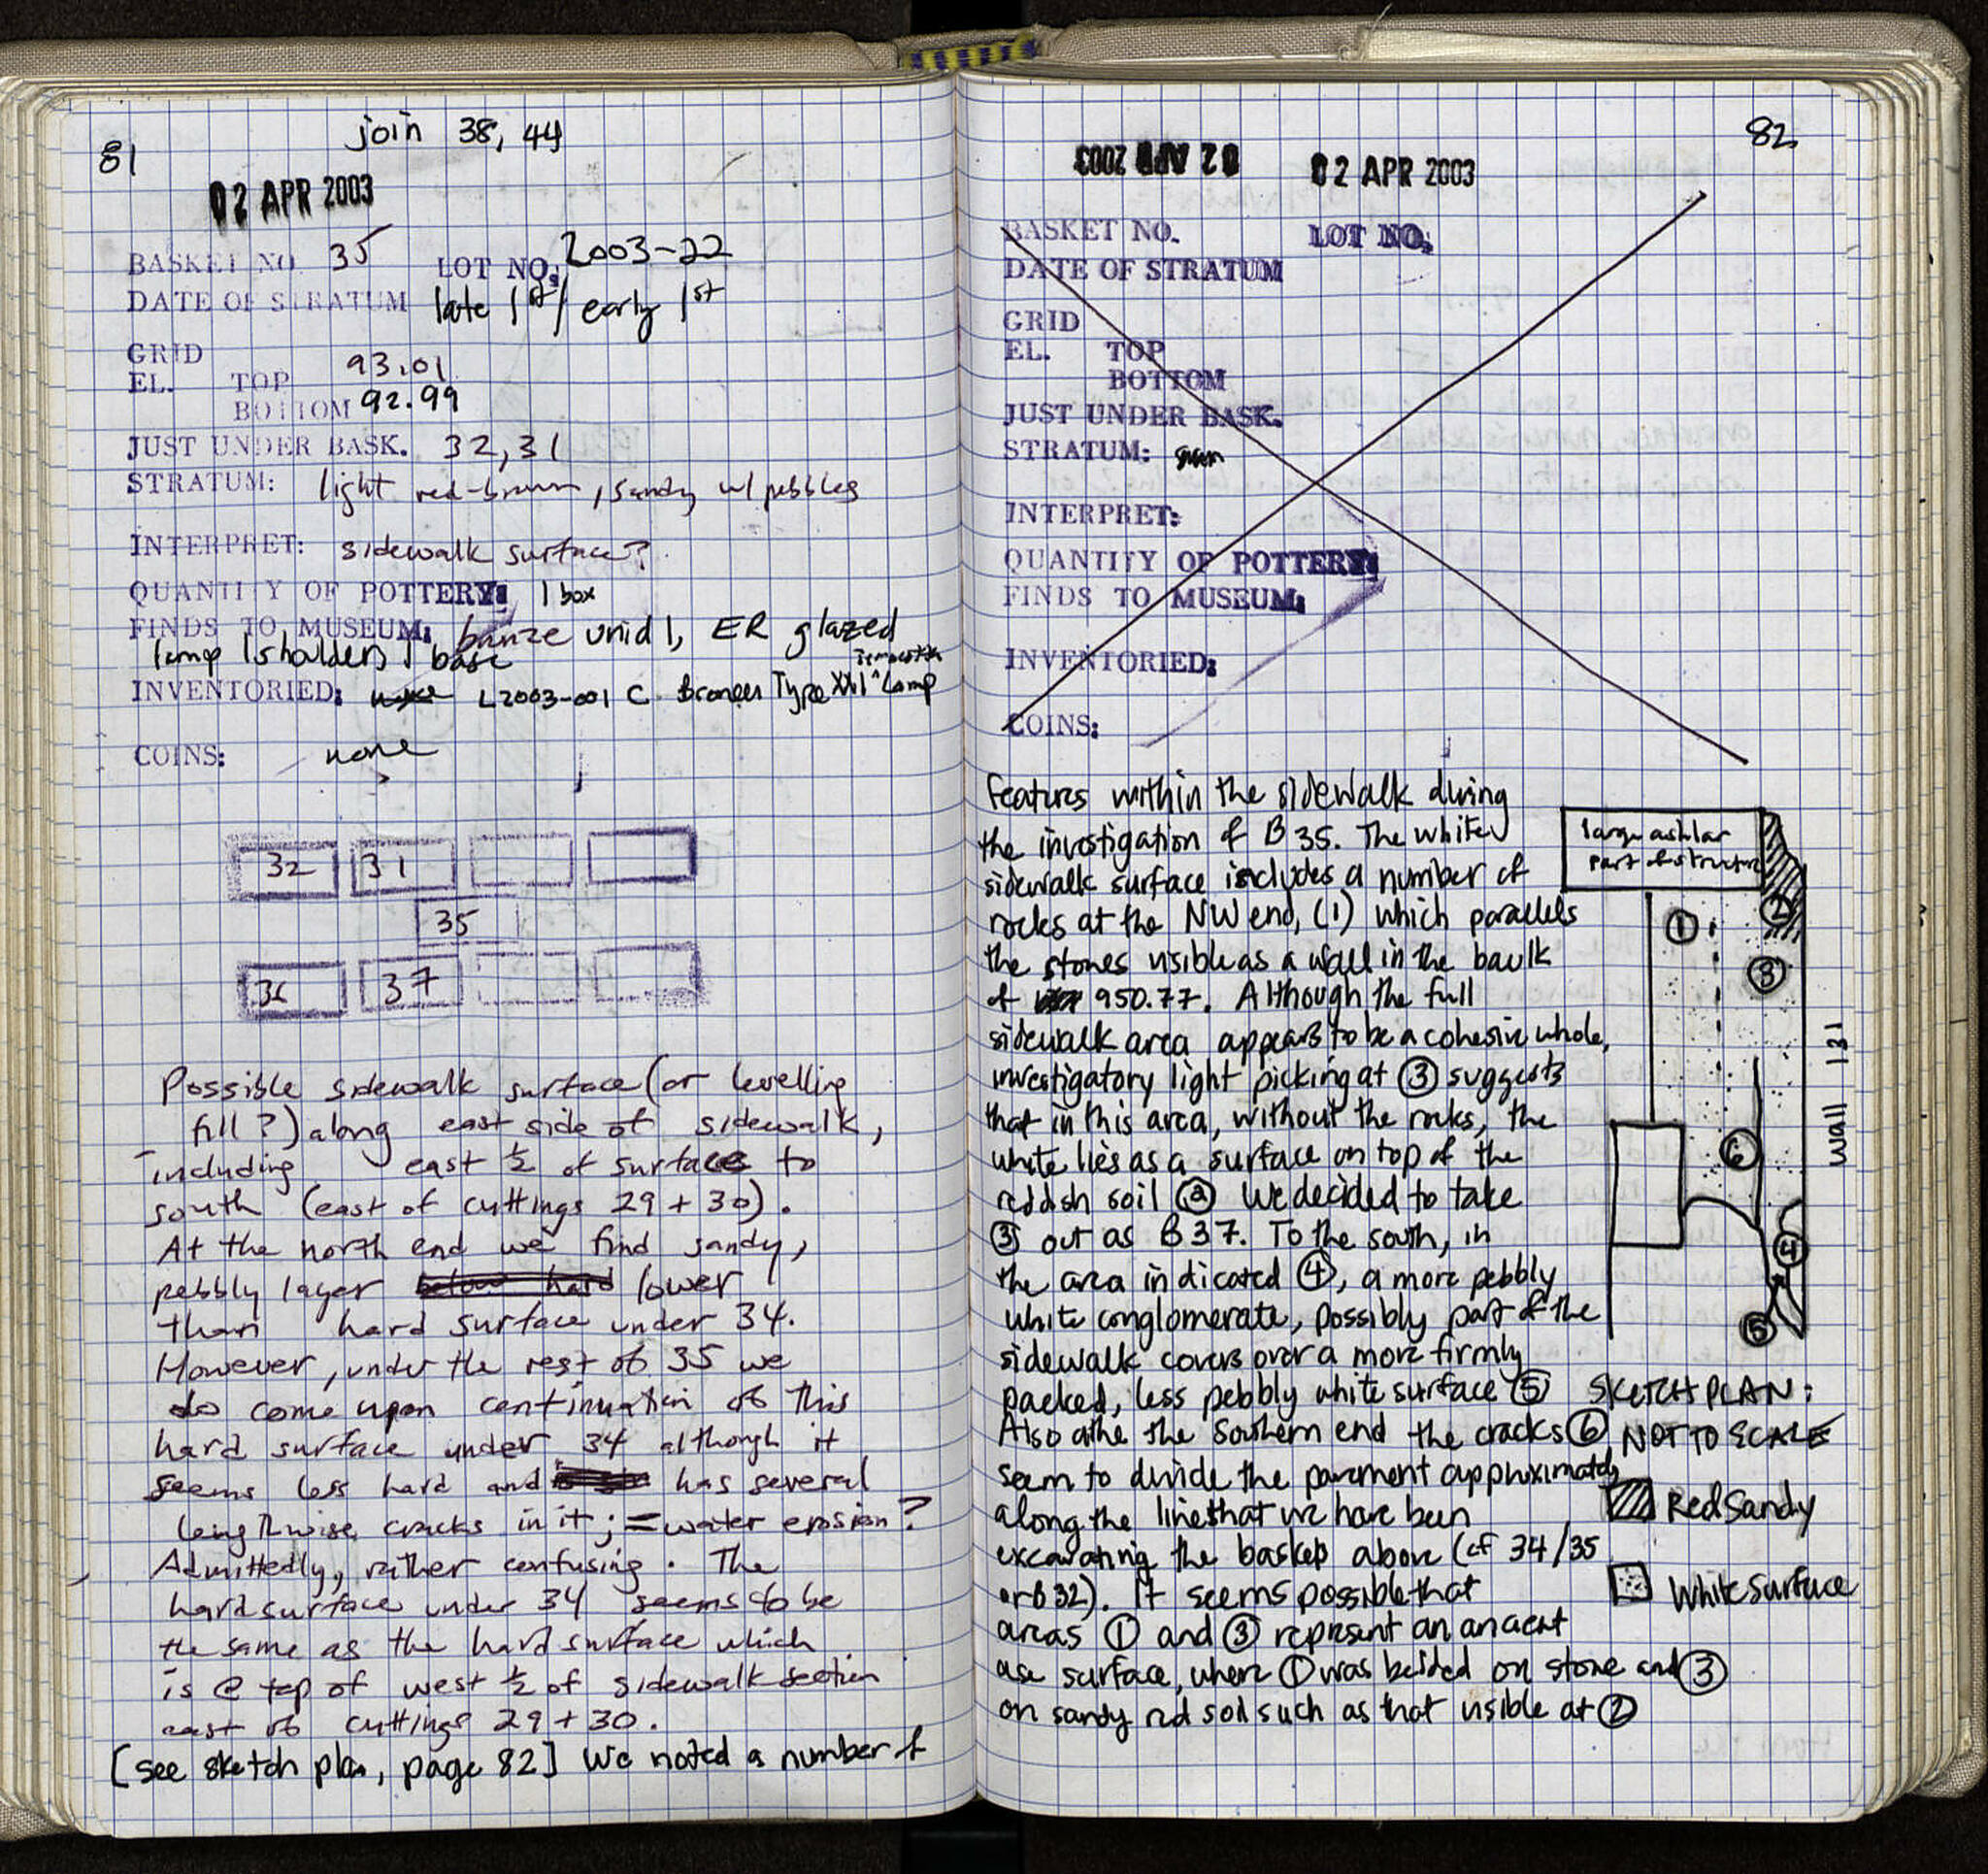 81
join 38, 44
02 APR 2003
BASKET NO. 35 LOT NO. 2003-22
DATE OF STRATUM late 1st/ early 1st
GRID
EL. TOP 93.01
BOTTOM 92.99
JUST UNDER BASK. 32, 31
STRATUM: light red-brown, sandy w/ pebbles
INTERPRET: sidewalk surface?
QUANTITY OF POTTERY: 1 box
FINDS TO MUSEUM: unid 1, ER glazed
lamp 1 shoulder, 1 base
INVENTORIED: L2003-001 C. Broneer Type XXI Lamp
COINS: none
32 31
35
36 37
Possible sidewalk surface (or levelling
fill?) along east side of sidewalk,
including east ½ of surface to
south (east of cuttings 29 + 30).
At the north end we find sandy,
pebbly layer below hard lower
than hard surface under 34.
However, under the rest of 35 we
do come upon continuation of this
hard surface under 34 although it
seems less hard and has several
lengthwise cracks in it; = water erosion?
Admittedly, rather confusing. The
hard surface under 34 seems to be
the same as the hard surface which
is @ top of west ½ of sidewalk section
east of cuttings 29 + 30.
[see sketch plan, page 82] We noted a number of
82
02 APR 2003 02 APR 2003
BASKET NO. LOT NO.
DATE OF STRATUM
GRID
EL. TOP
BOTTOM
JUST UNDER BASK.
STRATUM:
INTERPRET:
QUANTITY OF POTTERY:
FINDS TO MUSEUM:
INVENTORIED:
COINS:
features within the sidewalk during
the investigation of B 35. The white
sidewalk surface includes a number of
rocks at the NW end, (1) which parallels
the stones visible as a wall in the baulk
of 950.77. Although the full
sidewalk area appears to be a cohesive whole,
investigatory light picking at ③ suggests
that in this area, without the rocks, the
white lies as a surface on top of the
reddish soil ② We decided to take
③ out as B 37. To the south, in
the area indicated ④, a more pebbly
white conglomerate, possibly part of the
sidewalk covers over a more firmly
packed, less pebbly white surface ⑤
Also at the the southern end the cracks ⑥
seem to divide the pavement approximately
along the line that we have been
excavating the baskets above (cf 34/35
or B 32). It seems possible that
areas ① and ③ represent an ancient
use surface, where ① was bedded on stone and ③
on sandy red soil such as that visible at ②
large ashlar
part of structure
①
②
③
⑥
④
⑤
Wall 131
SKETCH PLAN:
NOT TO SCALE
Red Sandy
White surface